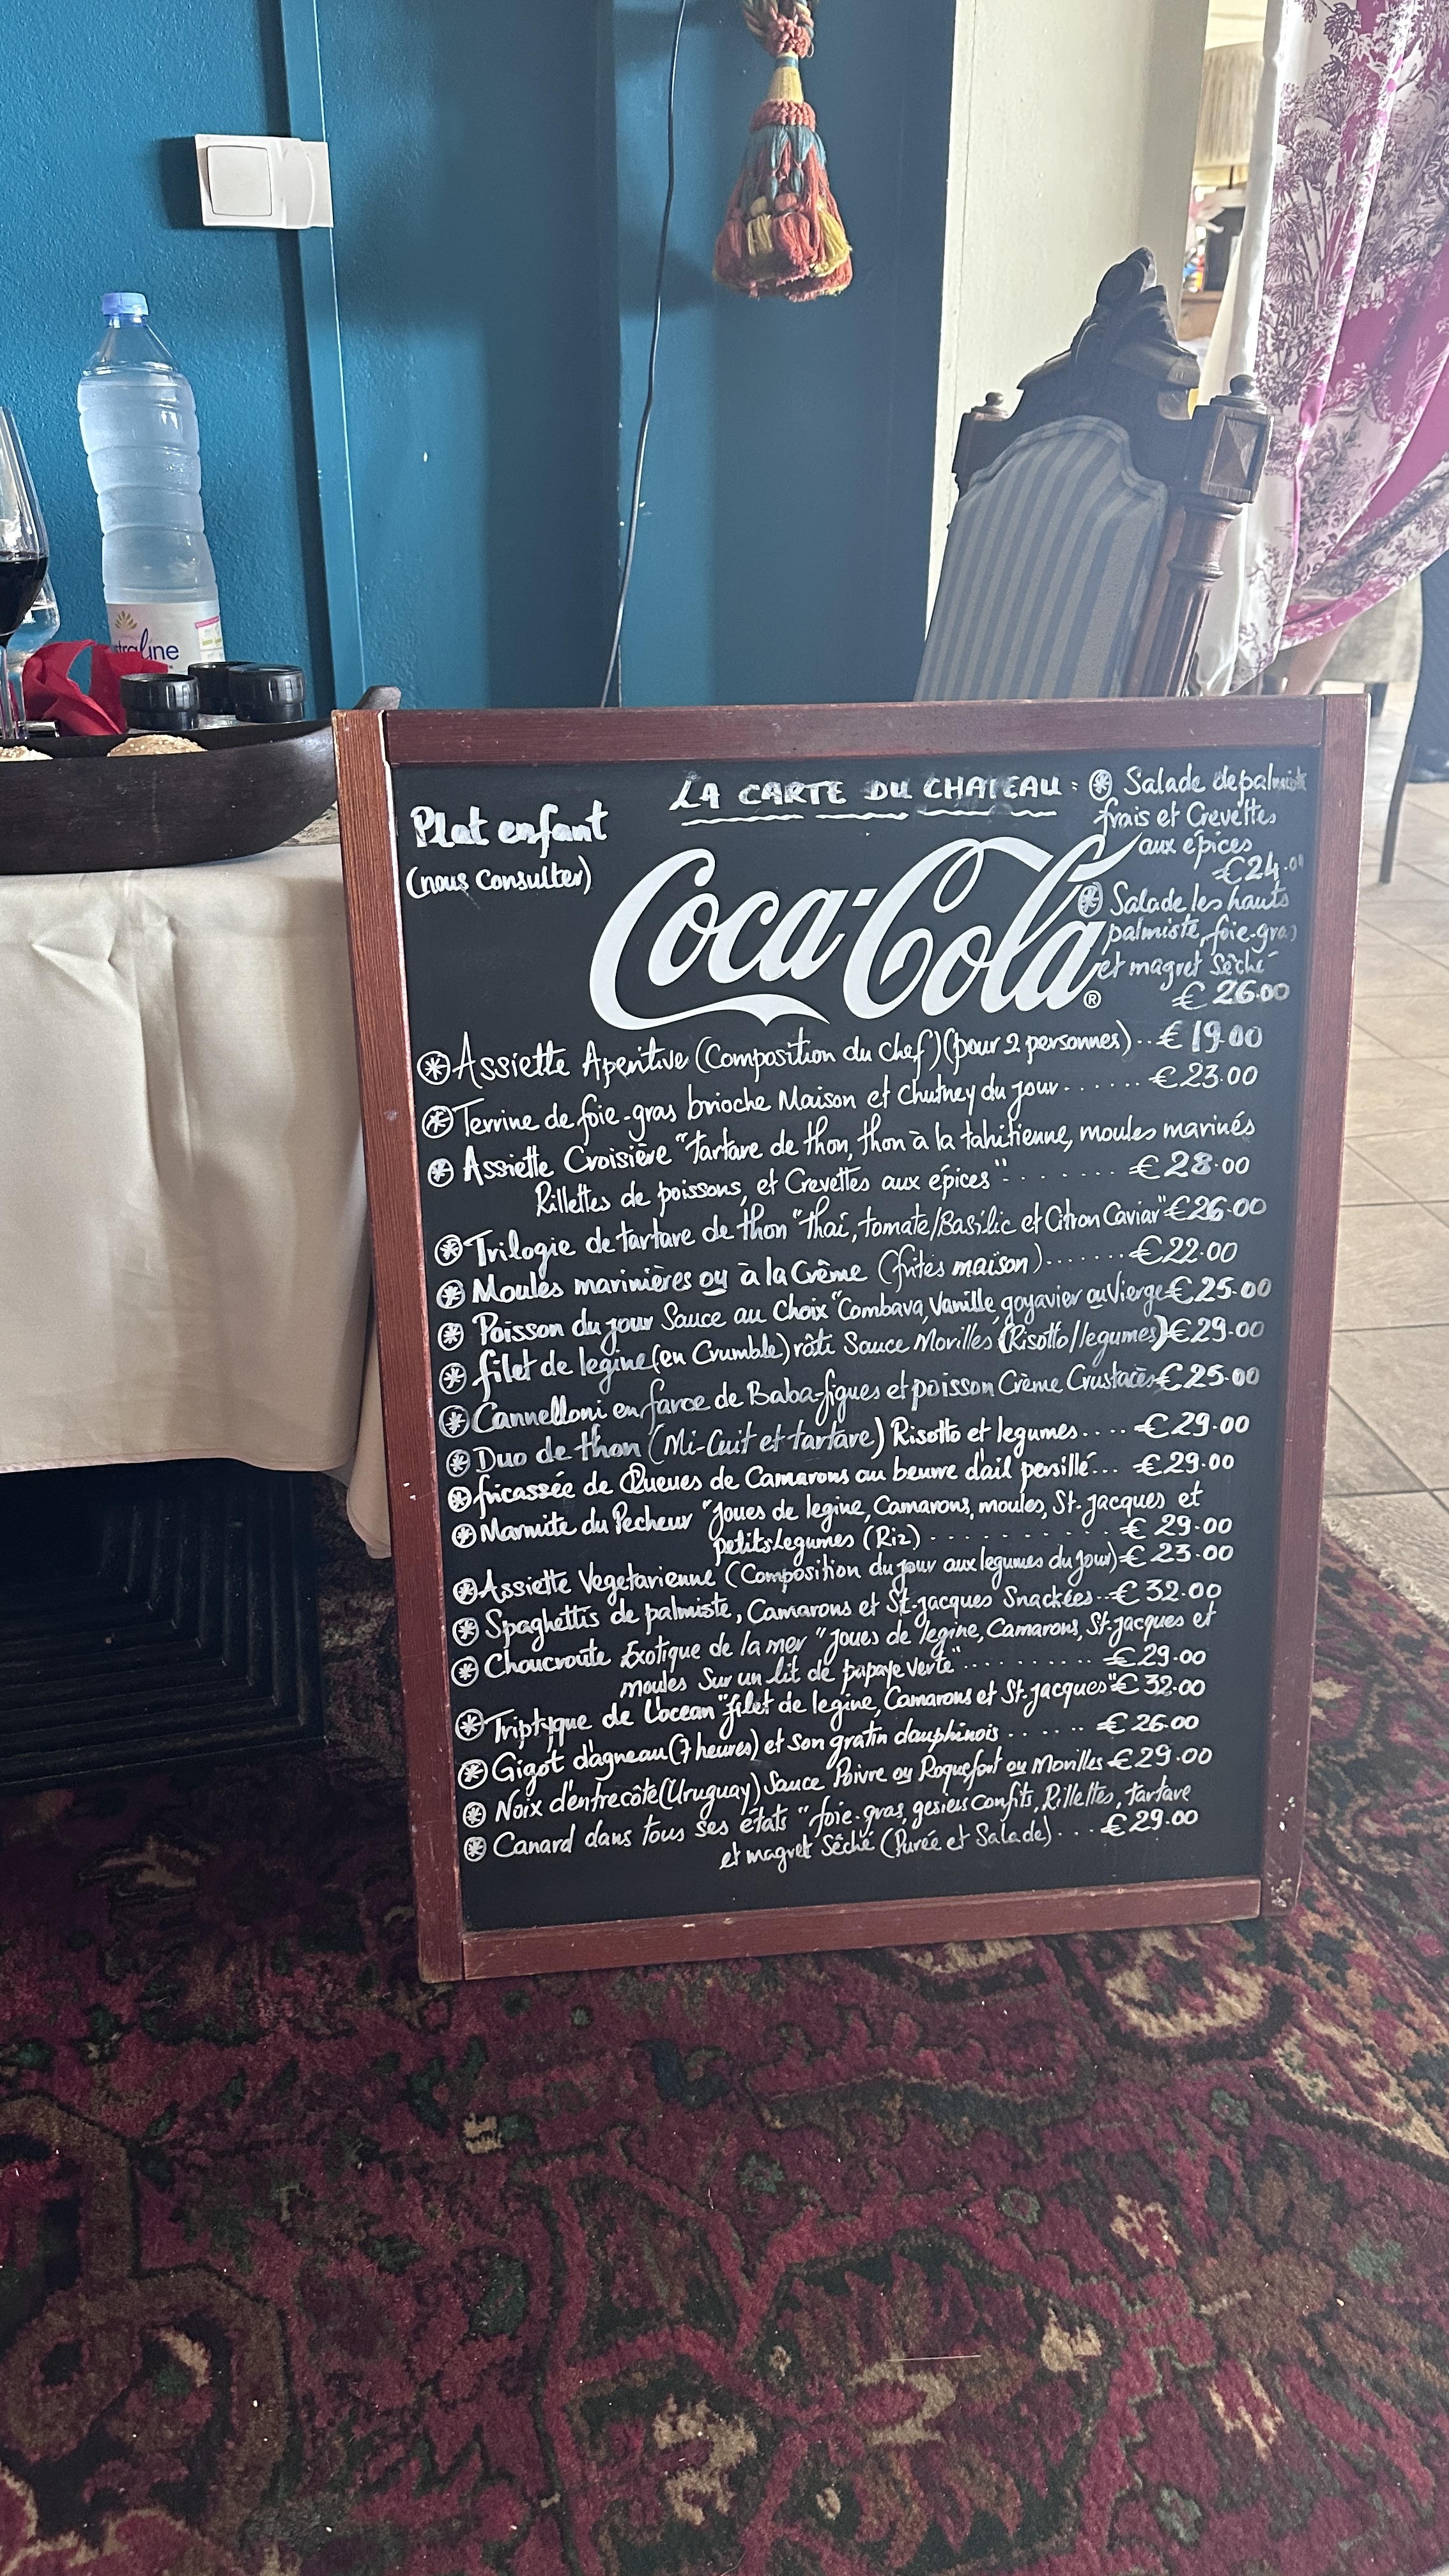 LA CARTE DU CHATEAU :
Plat enfant
(nous consulter)
Coca-Cola®
Salade de palmiste
frais et Crevettes
aux épices
€24.0
Salade les hauts
palmiste, foie-gras
et magret Séché
€26.00
Assiette Aperitive (Composition du chef)(pour 2 personnes)..€19.00
Terrine de foie-gras brioche Maison et Chutney du jour.......€23.00
Assiette Croisière "tartare de thon, thon à la tahitienne, moules marinés
Rillettes de poissons, et Crevettes aux épices".......€28.00
Trilogie de tartare de thon "thaï, tomate/Basilic et Citron Caviar"€26.00
Moules marinières ou à la Crème (frites maison).......€22.00
Poisson du jour Sauce au Choix "Combava, Vanille, goyavier ou Vierge€25.00
filet de legine(en Crumble) rôti Sauce Morilles (Risotto/legumes)€29.00
Cannelloni en farce de Baba-figues et poisson Crème Crustacès€25.00
Duo de thon (Mi-Cuit et tartare) Risotto et legumes....€29.00
fricassée de Queues de Camarons au beurre d'ail persillé...€29.00
Marmite du Pecheur "Joues de legine, Camarons, moules, St-Jacques et
petits Legumes (Riz)..........€29.00
Assiette Vegetarienne (Composition du jour aux legumes du jour)€23.00
Spaghettis de palmiste, Camarons et St-jacques Snackées..€32.00
Choucroute Exotique de la mer "Joues de legine, Camarons, St-jacques et
moules Sur un lit de papaye verte"..........€29.00
Triptyque de L'ocean "filet de legine, Camarons et St-jacques"€32.00
Gigot d'agneau (7 heures) et son gratin dauphinois......€26.00
Noix d'entrecôte (Uruguay) Sauce Poivre ou Roquefort ou Morilles€29.00
Canard dans tous ses états "foie-gras, gesiers confits, Rillettes, tartare
et magret Séché (Purée et Salade)...€29.00